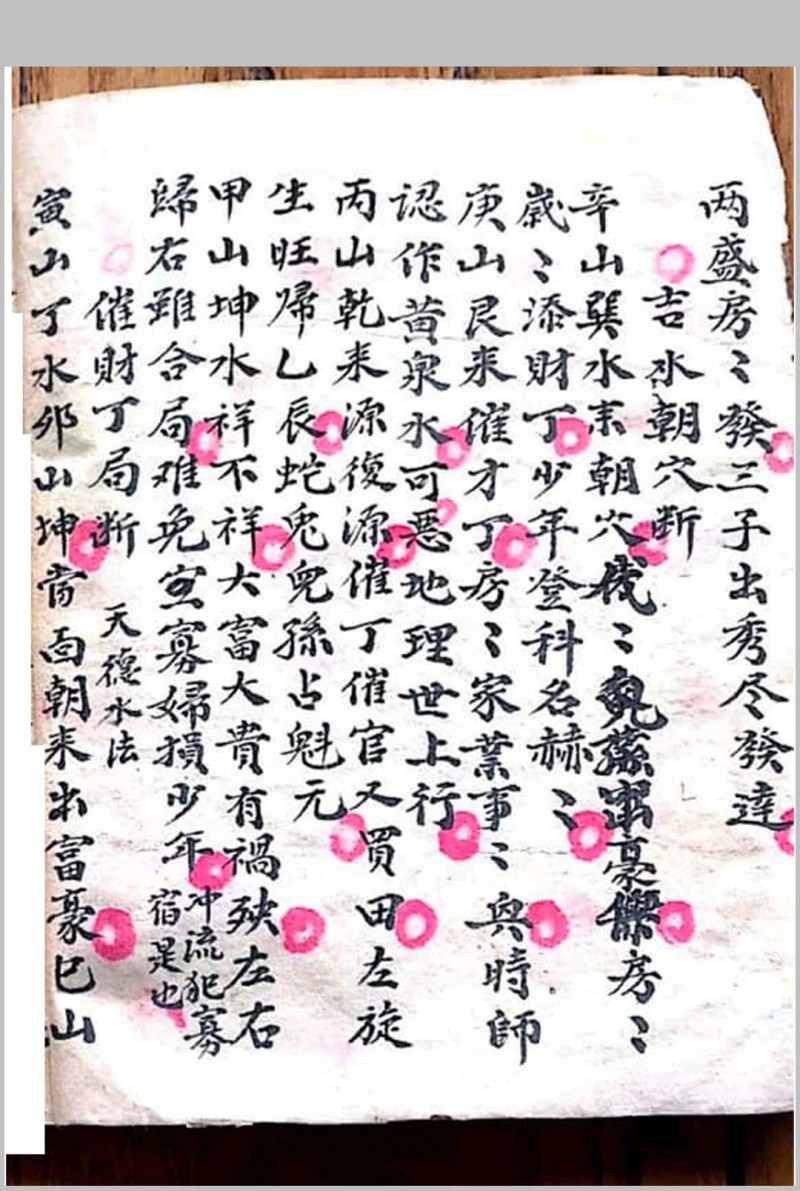 两盛房〻發三子出秀尽發達
吉水朝穴断
辛山巽水来朝穴俊〻兒孫出豪傑房〻
歲〻添財丁少年登科名赫〻
庚山艮来催才丁房〻家業事〻與時師
認作黄泉水可惡地理世上行
丙山乾来源復源催丁催官又買田左旋
生旺帰乙辰蛇兎兒孫占魁元
甲山坤水祥不祥大富大貴有禍殃左右
歸右雖合局难免宮寡婦損少年
冲流犯寡
宿是也
催財丁局断 天德水法
寅山丁水夘山坤當面朝来出富豪巳山